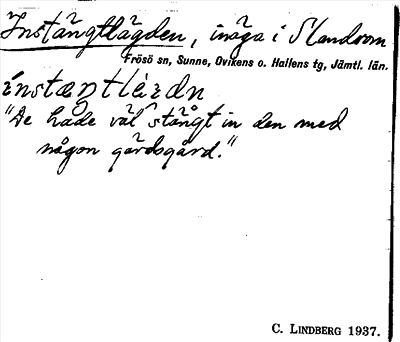 Instängtlägden, inäga i Slandrom
Frösö sn, Sunne, Ovikens o. Hallens tg, Jämtl. län.
"De hade väl stängt in den med
någon gärdsgård."
C. LINDBERG 1937.